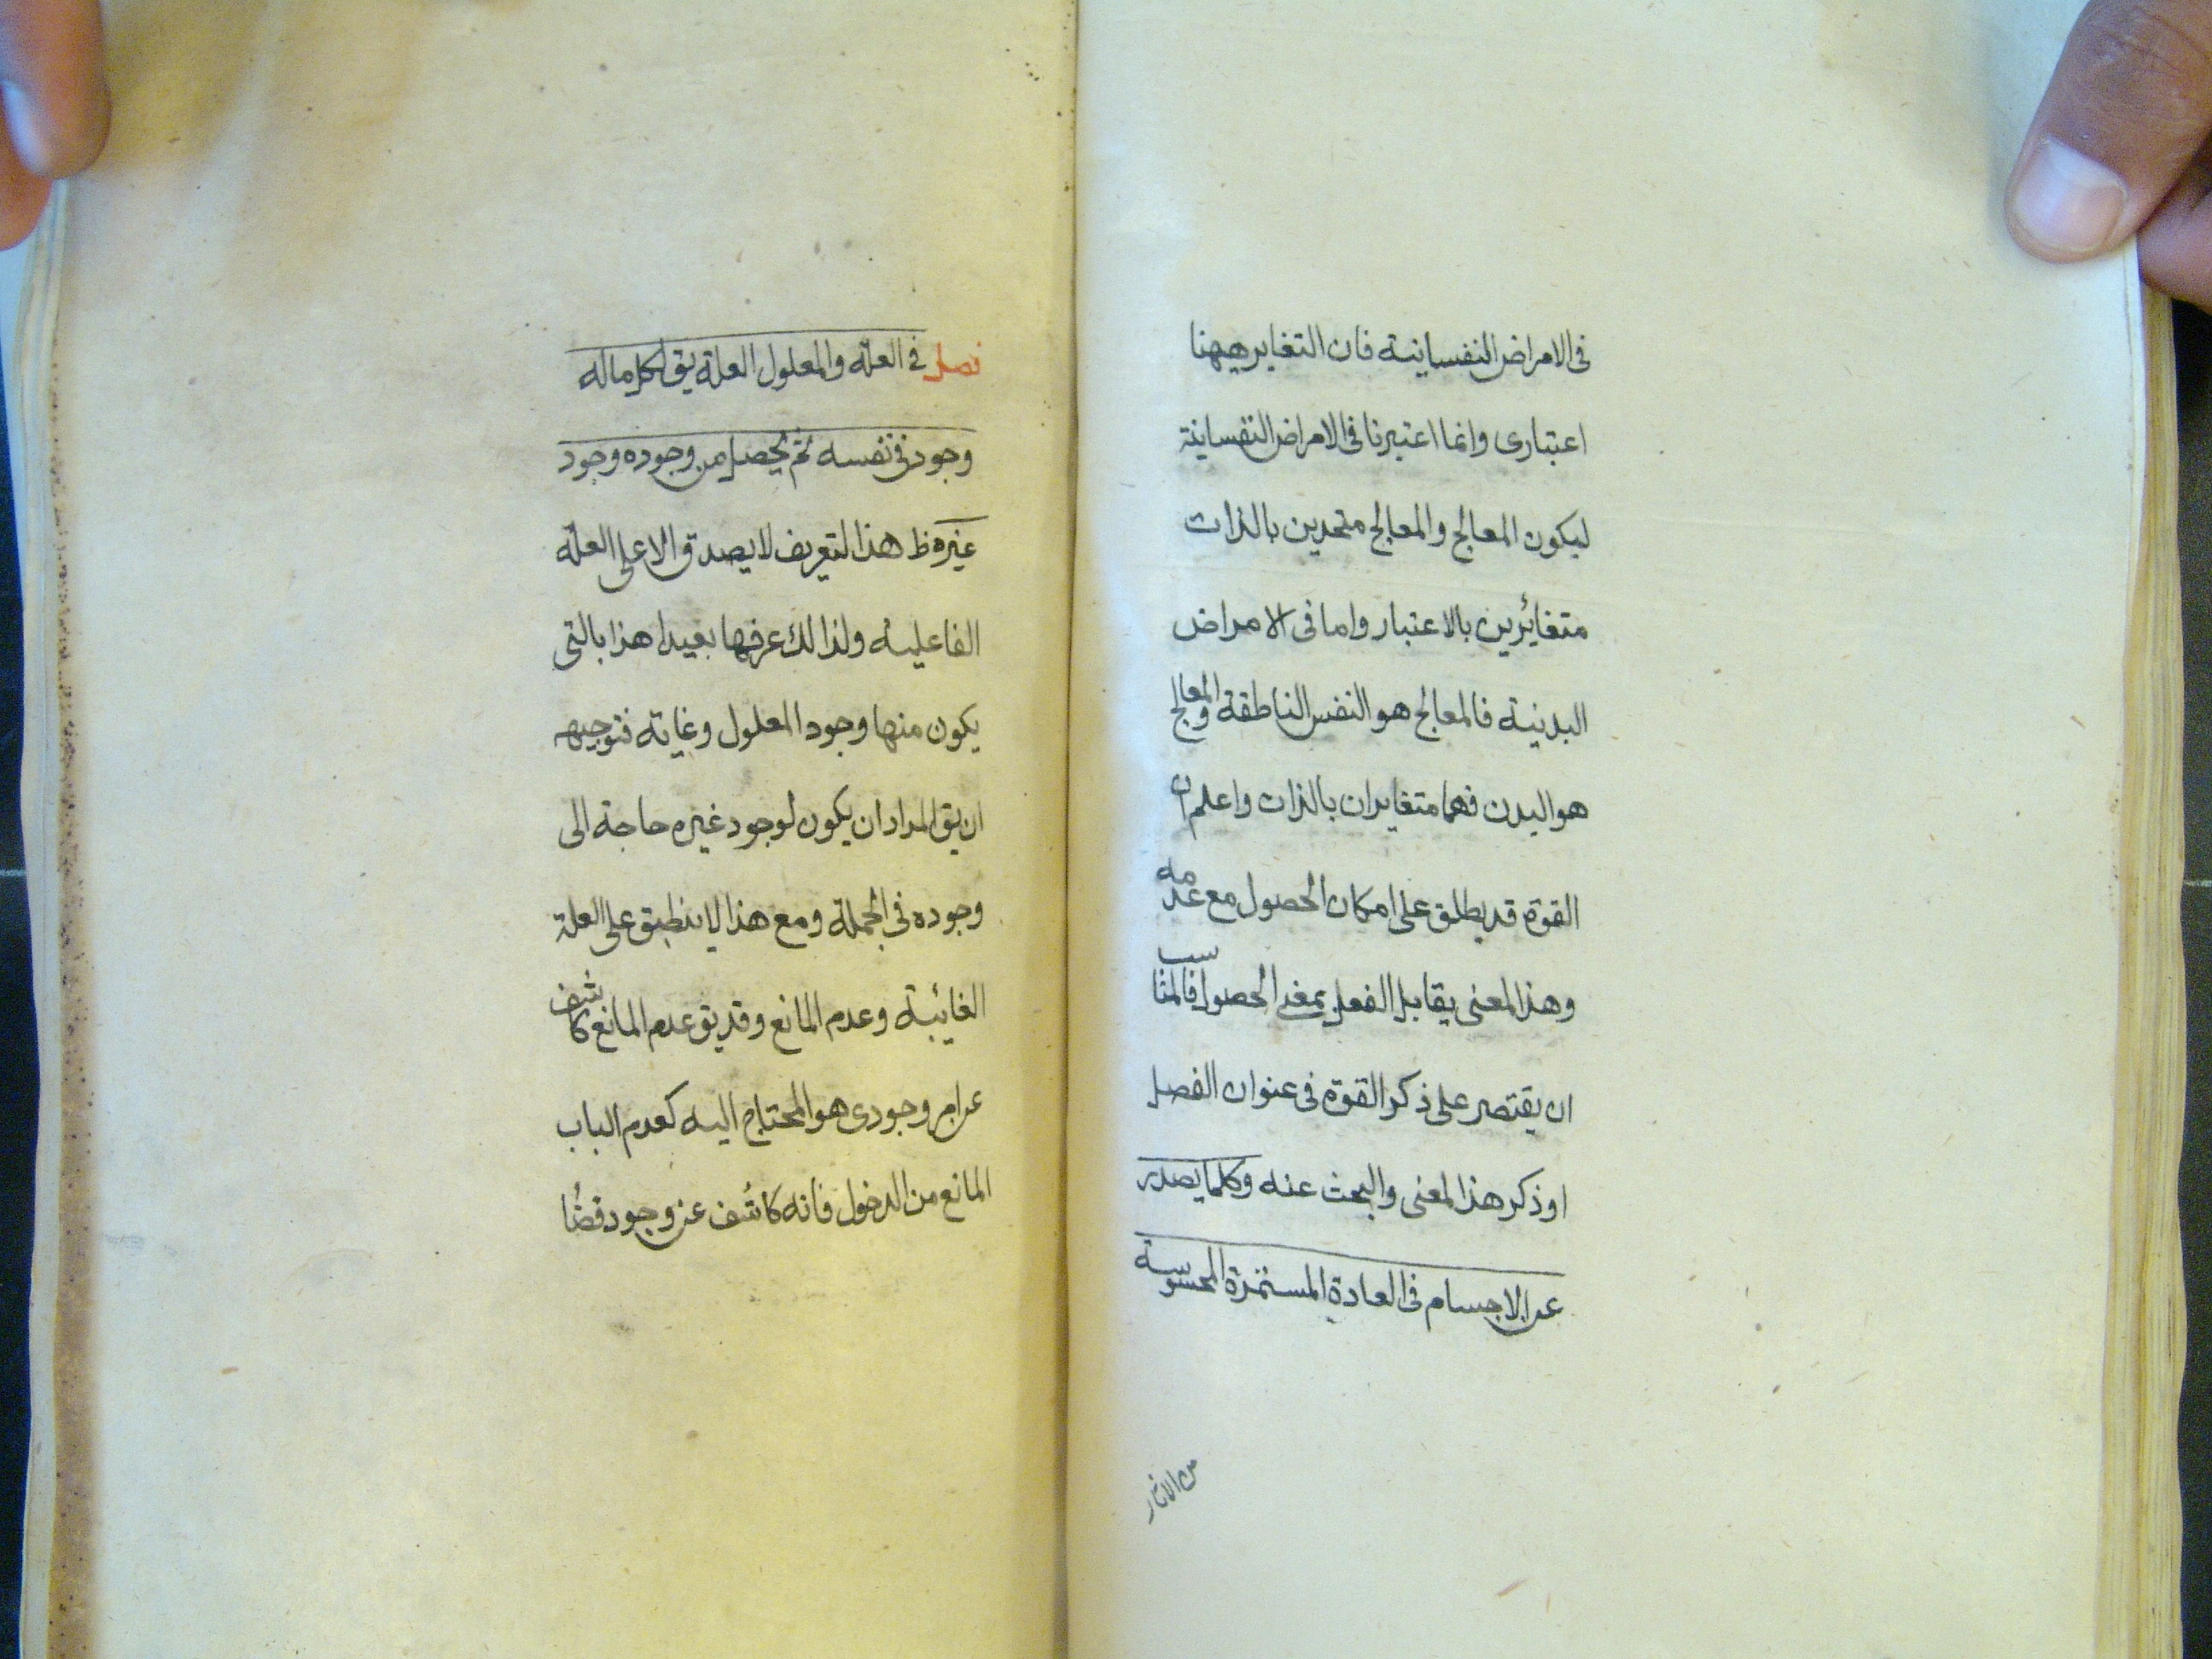 فى الامراض النفسانية فان التغاير ههنا
اعتبارى وانما اعتبرنا فى الامراض النفسانية
ليكون المعالج والمعالج متحدين بالذات
متغائرين بالاعتبار واما فى الامراض
البدنية فالمعالج هو النفس الناطقة والمعالج
هو البدن فهما متغايران بالذات واعلم ان
القوة قد يطلق على امكان الحصول مع عدمه
وهذا المعنى يقابل الفعل بمعنى الحصول فالمناسب
ان يقتصر على ذكر القوة فى عنوان الفصل
او ذكر هذا المعنى والبحث عنه وكلما يصدر
عن الاجسام فى العادة المستمرة المحسوسة
من الاثار
فصل فى العلة والمعلول العلة يق لكل ما له
وجود فى نفسه ثم يحصل من وجوده وجود
غيره ظ هذا التعريف لا يصدق الا على العلة
الفاعلية ولذالك عرفها بعيد هذا بالتى
يكون منها وجود المعلول وغاية توجيهه
ان يق المراد ان يكون لوجود غيره حاجة الى
وجوده فى الجملة ومع هذا لا ينطبق على العلة
الغائية وعدم المانع وقد يق عدم المانع كاشف
عن امر وجودى هو المحتاج اليه كعدم الباب
المانع من الدخول فانه كاشف عن وجود فضا